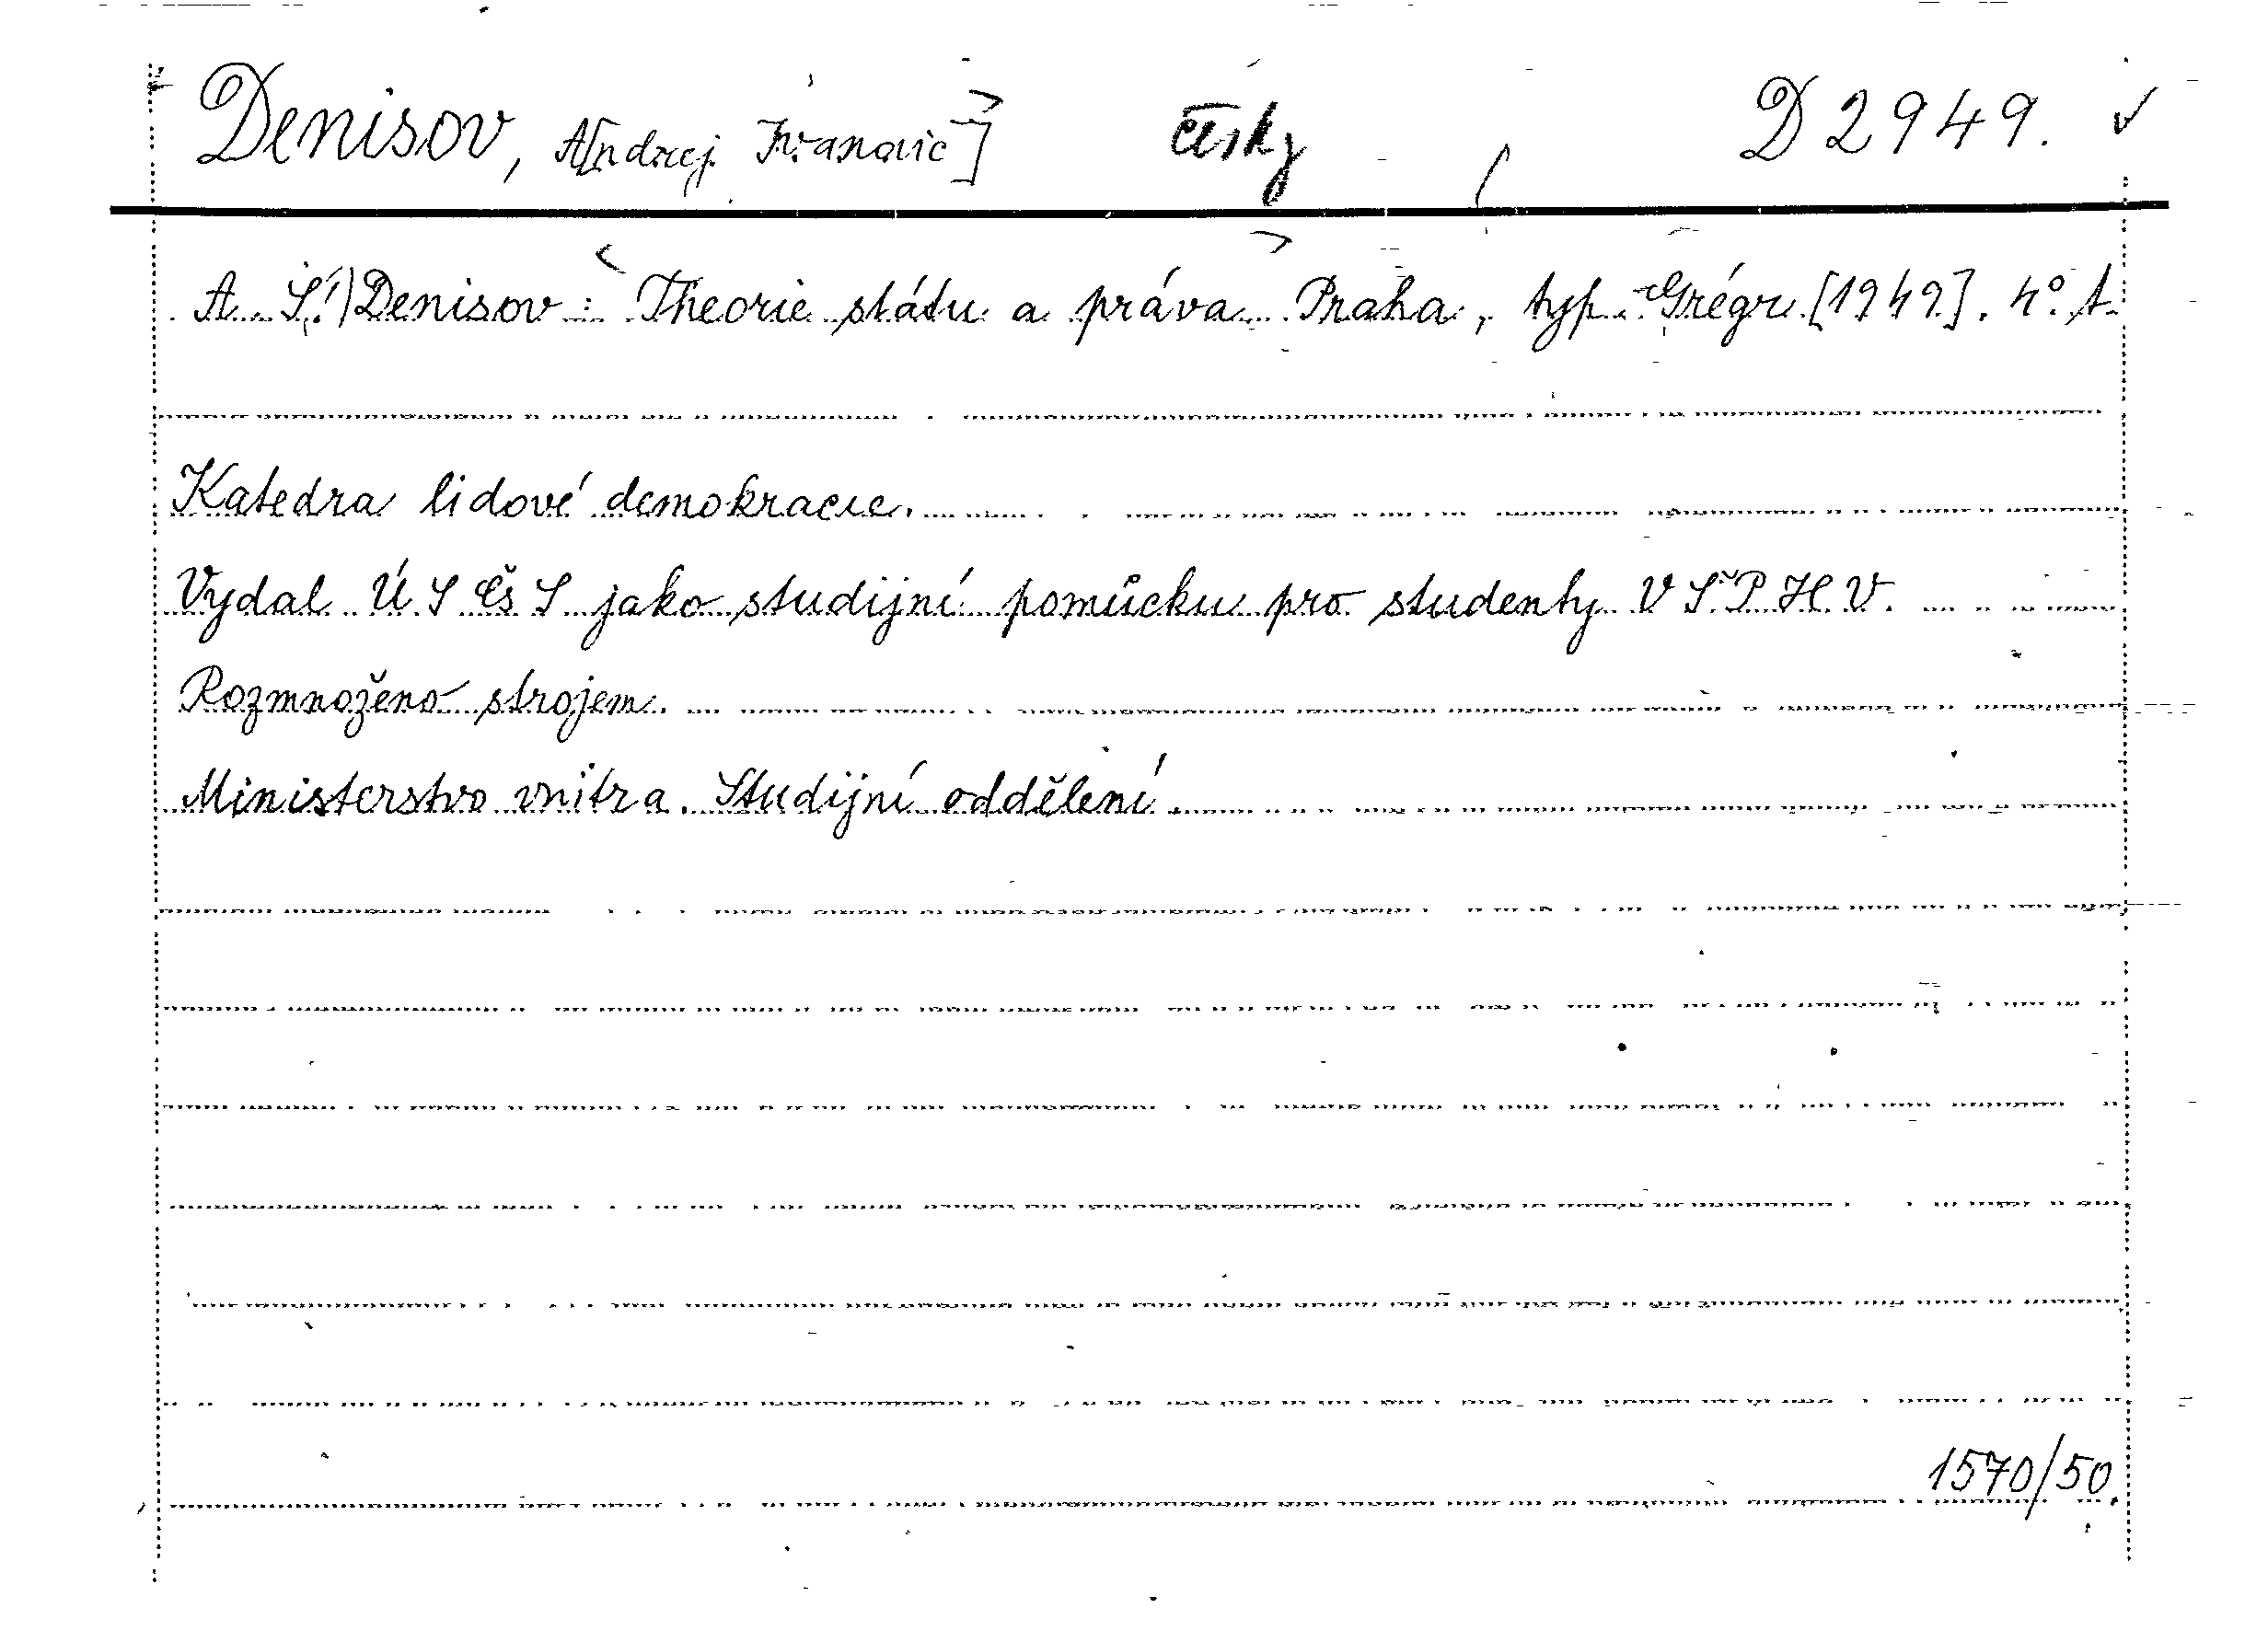 Denisov, A[ndrej Ivanovič] česky D 2949. ✓
A. S.!) Denisov: Theorie státu a práva. Praha, typ. Grégr [1949]. 4°. A.
Katedra lidové demokracie.
Vydal ÚSČsS jako studijní pomůcku pro studenty VŠPHV.
Rozmnoženo strojem.
Ministerstvo vnitra. Studijní oddělení.
1570/50.